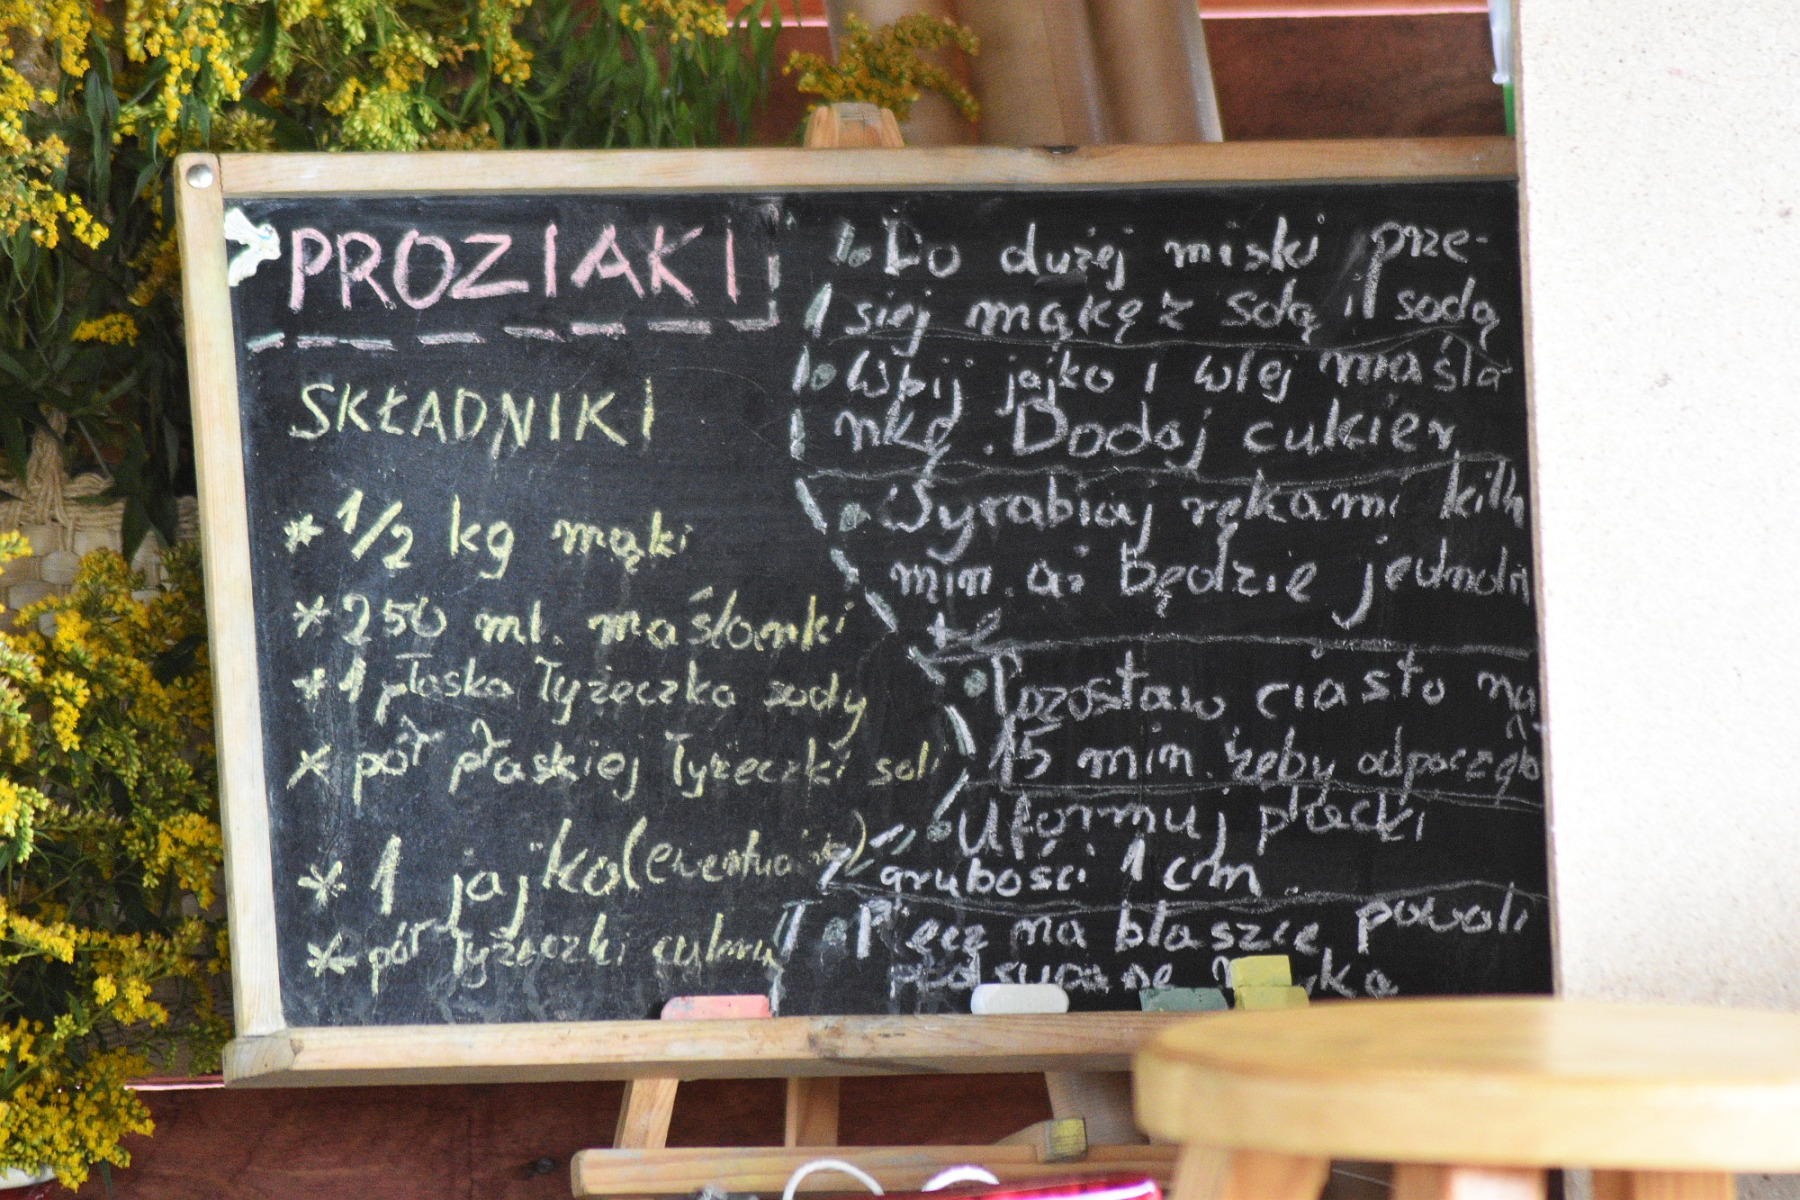 PROZIAKI
SKŁADNIKI
* 1/2 kg mąki
* 250 ml. maślanki
* 1 płaska łyżeczka sody
* pół płaskiej łyżeczki soli
* 1 jajko (ewentualnie)
* pół łyżeczki cukru
Do dużej miski prze-
siej mąkę z solą i sodą
Wbij jajko i wlej maśla
nkę. Dodaj cukier
Wyrabiaj rękami kilka
min. aż będzie jednoli
te
Pozostaw ciasto na
15 min. żeby odpoczęło
Uformuj placki
grubości 1 cm.
Piecz na blasze powoli
podsypane mąką